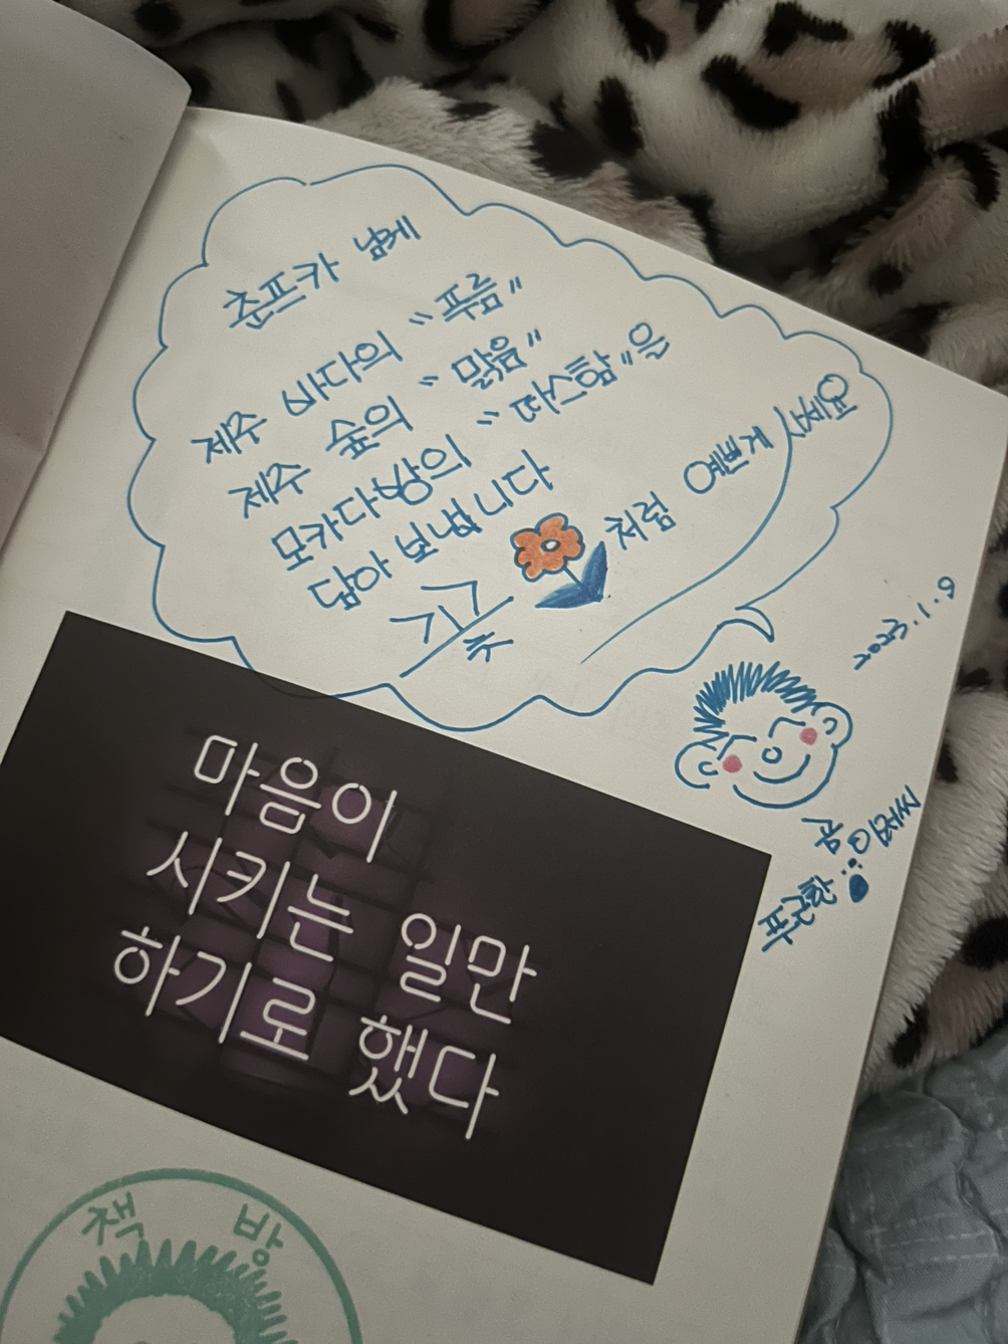 춘프카 님께
제주 바다의 "푸름"
제주 숲의 "맑음"
모카다방의 "따스함"을
담아 보냅니다
처럼 예쁘게 사세요
2023.1.9
마음이
시키는 일만
하기로 했다
책 방